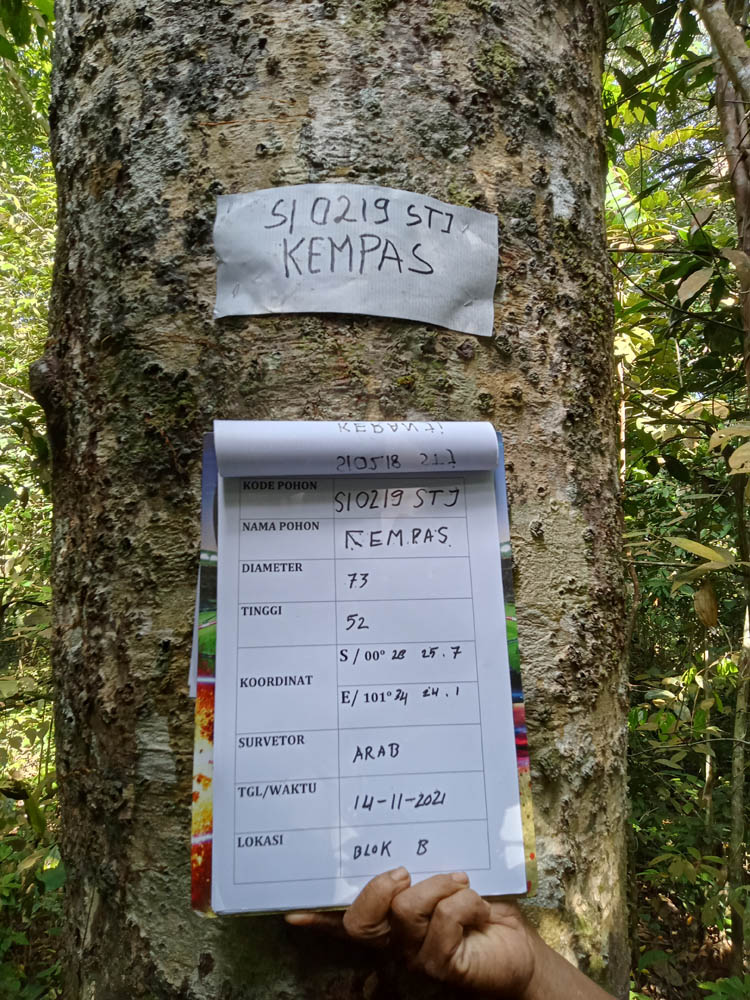 S10219 STJ
KEMPAS
KERANJI
S10518 STJ
KODE POHON S10219 STJ
NAMA POHON KEMPAS
DIAMETER 73
TINGGI 52
KOORDINAT S / 00° 28 25.7
E/ 101° 24 24.1
SURVETOR ARAB
TGL/WAKTU 14-11-2021
LOKASI BLOK B